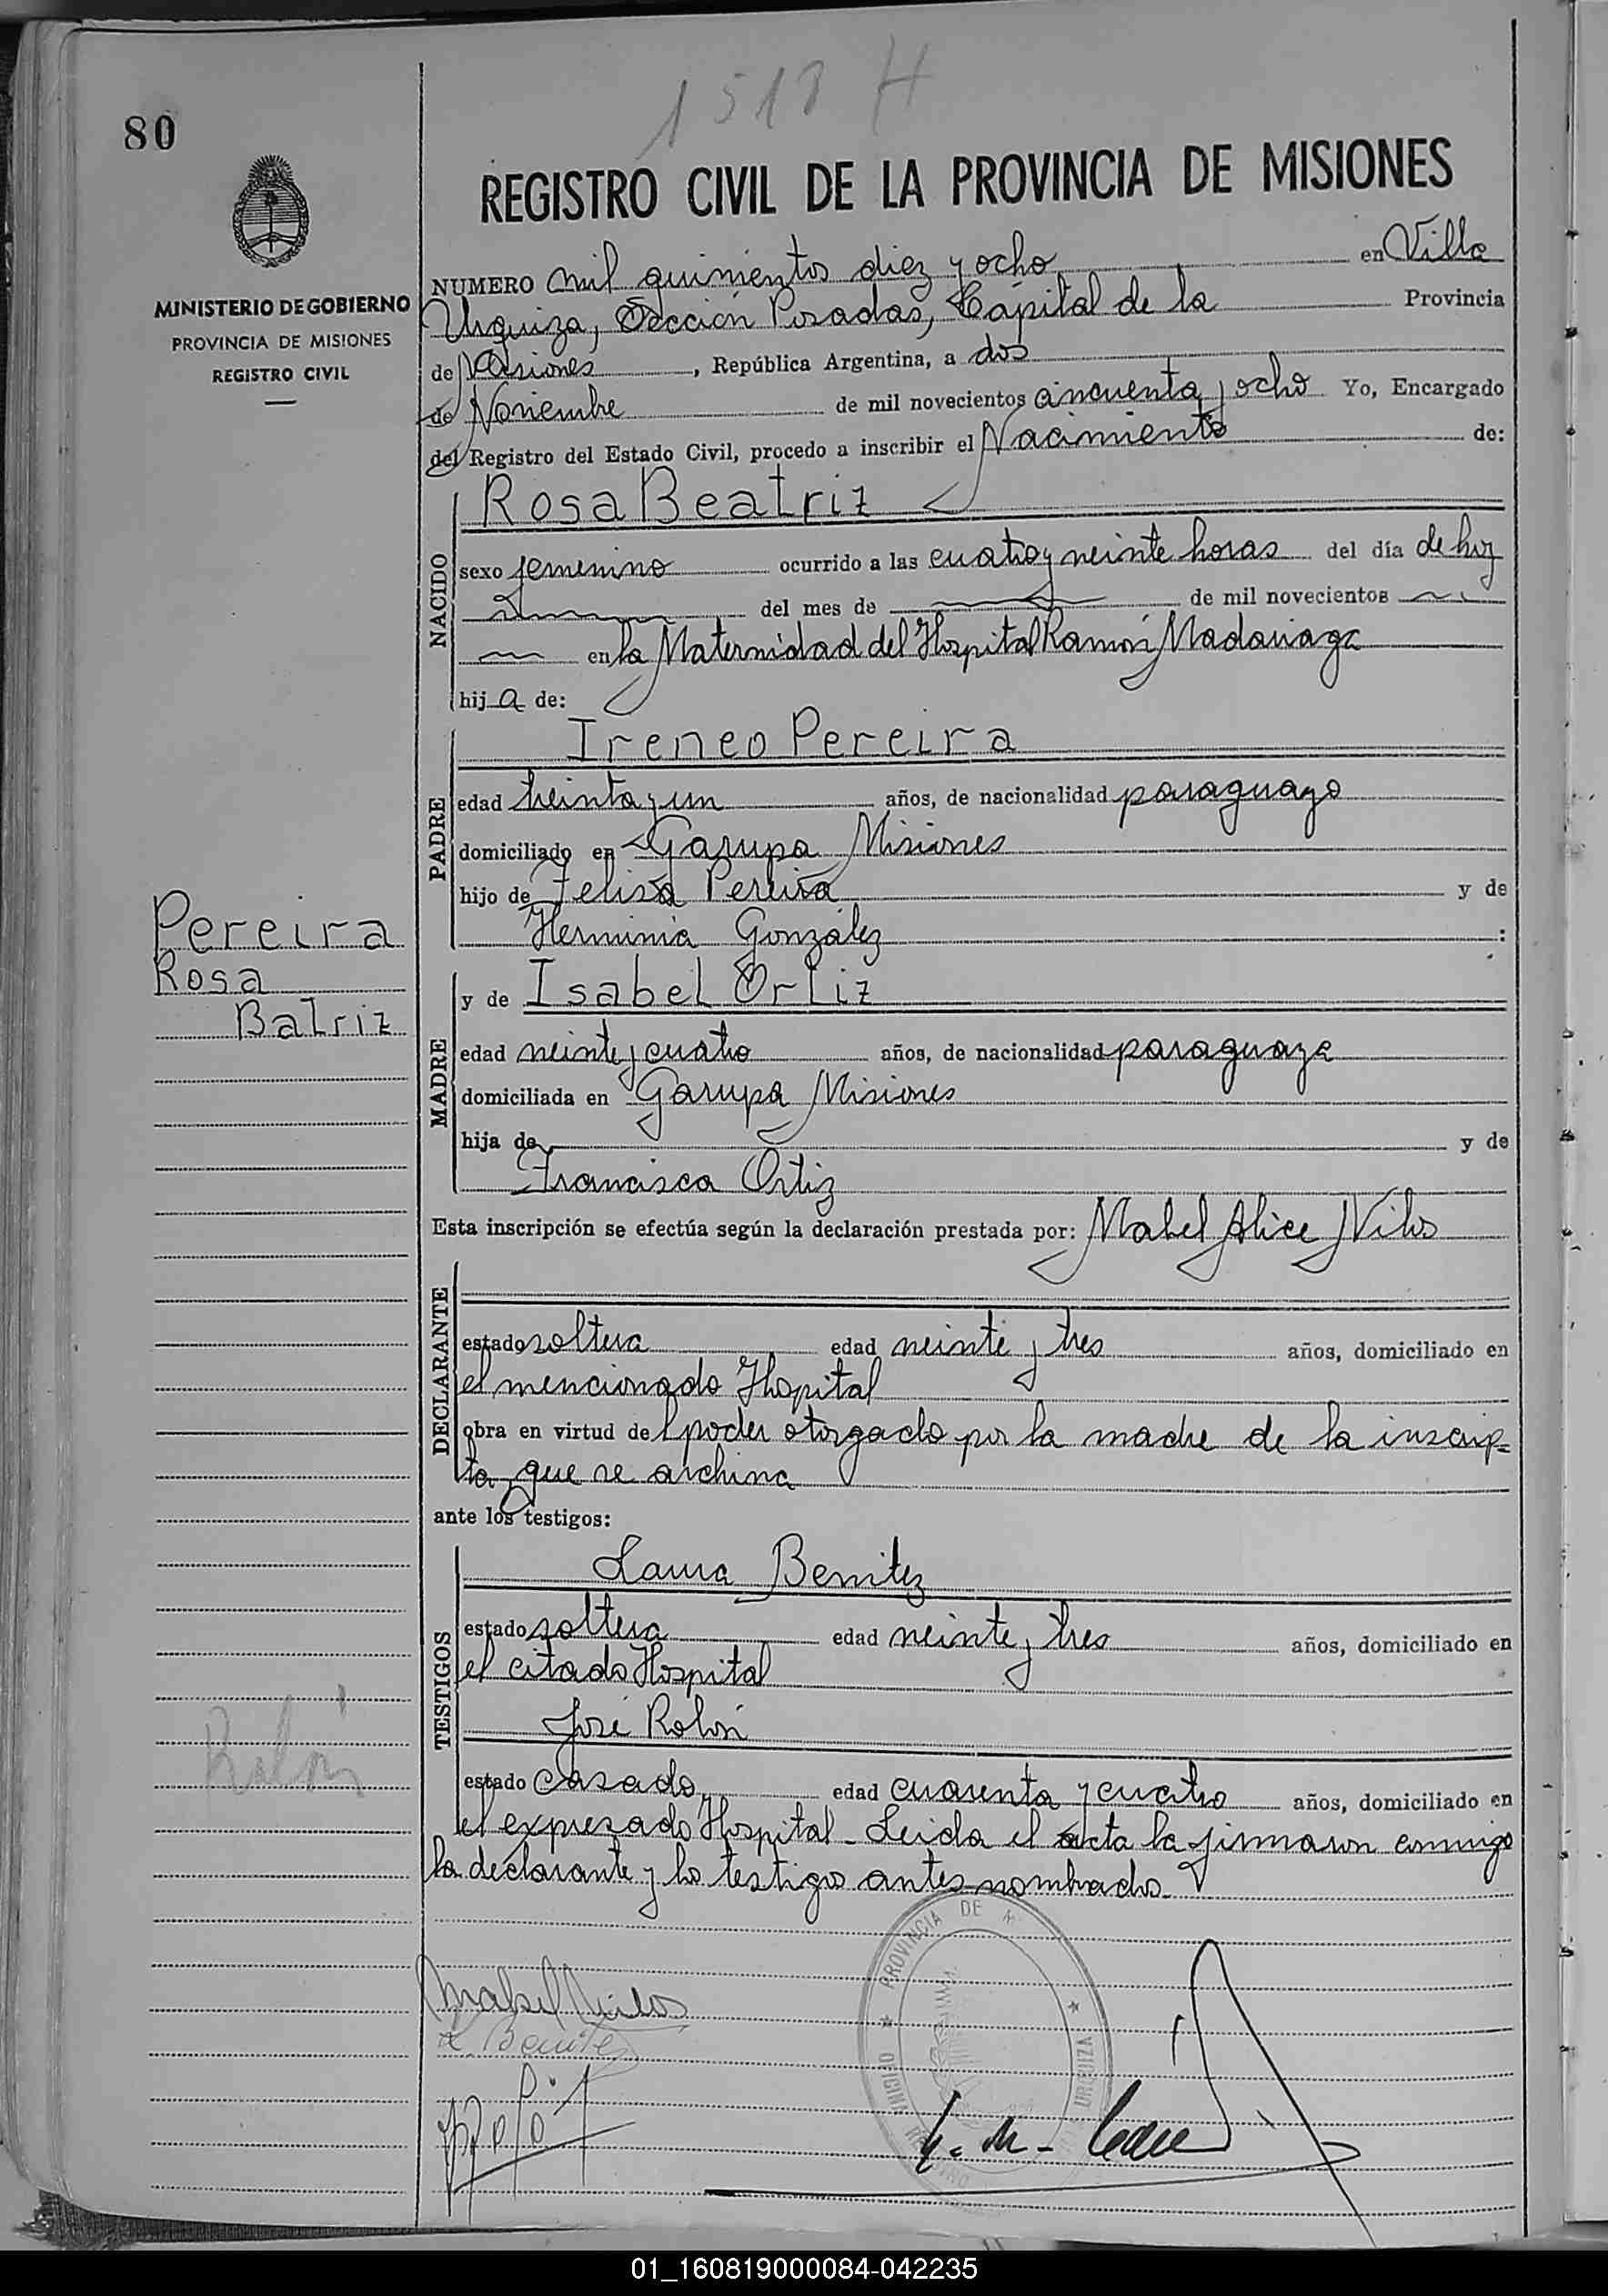 1518 H
80
REGISTRO CIVIL DE LA PROVINCIA DE MISIONES
MINISTERIO DE GOBIERNO
PROVINCIA DE MISIONES
REGISTRO CIVIL
NUMERO mil quinientos diez y ocho en Villa
Urquiza, Sección Posadas, Capital de la Provincia
de Misiones, República Argentina, a dos
de Noviembre de mil novecientos cincuenta y ocho Yo, Encargado
del Registro del Estado Civil, procedo a inscribir el Nacimiento de:
NACIDO
Rosa Beatriz
sexo femenino ocurrido a las cuatro y veinte horas del día de hoy
del mes de de mil novecientos
en la Maternidad del Hospital Ramón Madariaga
hija de:
PADRE
Ireneo Pereira
edad treinta y un años, de nacionalidad paraguayo
domiciliado en Garupa Misiones
hijo de Pereira y de
Herminia González :
Pereira
Rosa
Batriz
MADRE
y de Isabel Ortiz
edad veinte y cuatro años, de nacionalidad paraguaya
domiciliada en Garupa Misiones
hija de y de
Francisca Ortiz
Esta inscripción se efectúa según la declaración prestada por: Mabel Alice
DECLARANTE
estado soltera edad veinte y tres años, domiciliado en
el mencionado Hospital
obra en virtud del poder otorgado por la madre de la inscrip=
ta, que se archiva
ante los testigos:
TESTIGOS
Laura Benitez
estado soltera edad veinte y tres años, domiciliado en
el citado Hospital
José Rolón
estado casado edad cuarenta y cuatro años, domiciliado en
el expresado Hospital - Leida el acta la firmaron conmigo
la declarante y los testigos antes nombrados.
Rolón
PROVINCIA DE
URQUIZA
Mabel
L. Benitez
01_160819000084-042235